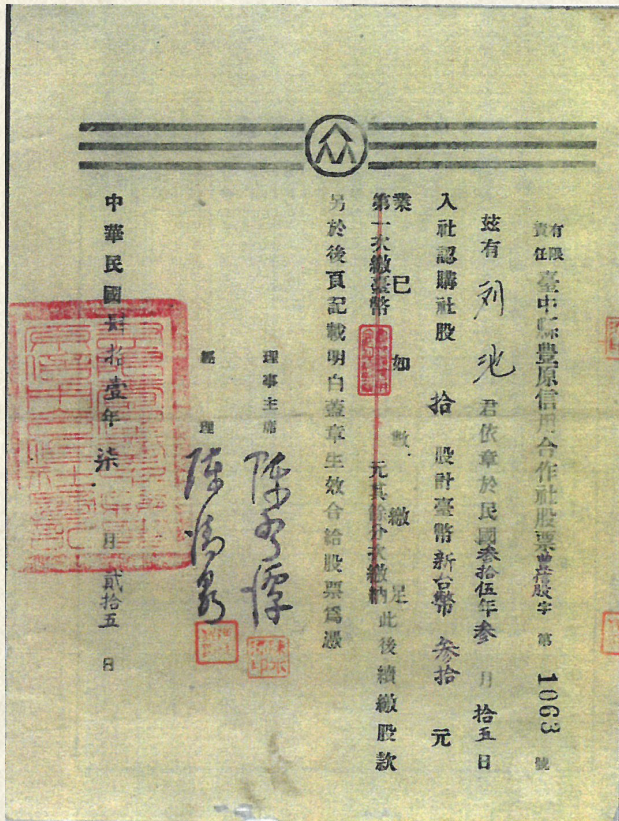 有限責任臺中縣豐原信用合作社股票豐拾股字第1063號
茲有 列 池 君依章於民國叁拾伍年叁月拾五日
入社認購社股 拾 股計臺幣新台幣 叁拾 元
業已如數繳足
第一次繳臺幣 元其餘分次繳納此後續繳股款
另於後頁記載明白蓋章生效合給股票爲憑
理事主席
經理
中華民國肆拾壹年柒月貳拾五日